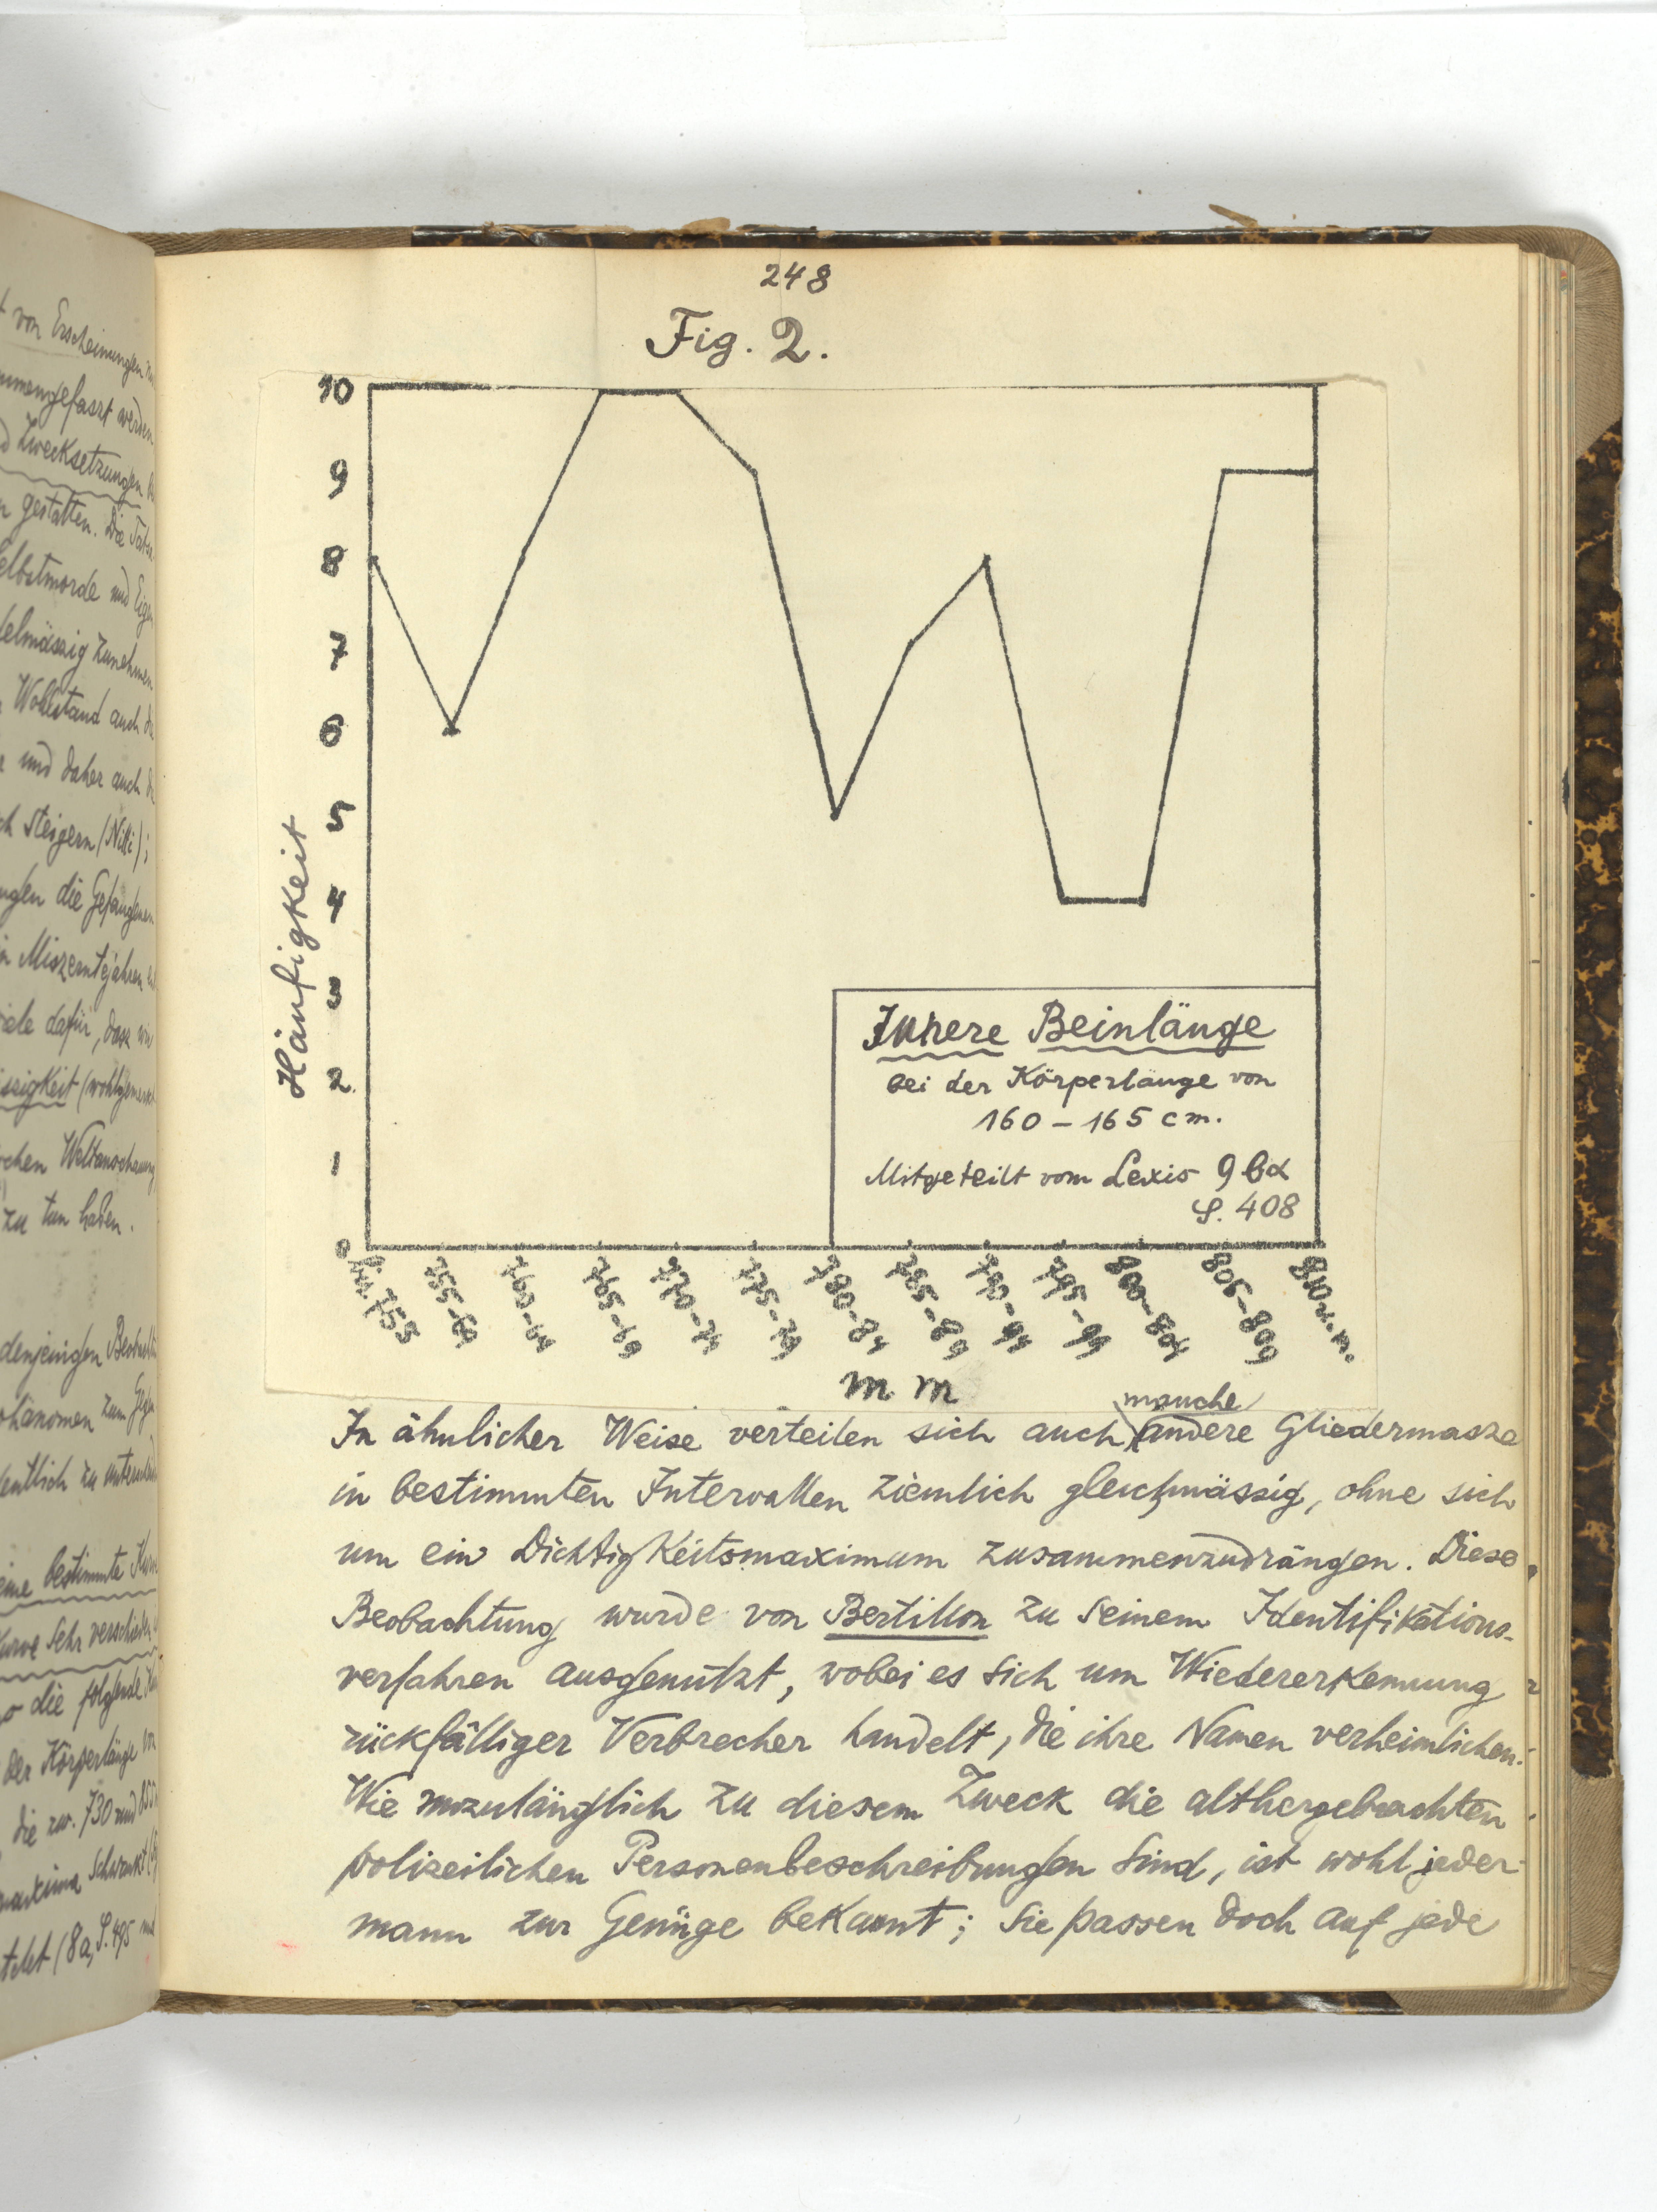 248
Fig. 2.
10
9
8
7
6
5
4
3
2
1
0
Häufigkeit
Innere Beinlänge
bei der Körperlänge von
160 – 165 cm.
Mitgeteilt vom Lexis 9 bα
S. 408
bis 755
755-59
760-64
765-69
770-74
775-79
780-84
785-89
790-94
795-99
800-804
805-809
810 u. m.
mm
manche
In ähnlicher Weise verteilen sich auch andere Gliedermasze
in bestimmten Intervallen ziemlich gleichmässig, ohne sich
um ein Dichtigkeitsmaximum zusammenzudrängen. Diese
Beobachtung wurde von Bertillon zu seinem Identifikations-
verfahren ausgenützt, wobei es sich um Wiedererkennung
rückfälliger Verbrecher handelt, die ihre Namen verheimlichen.
Wie unzulänglich zu diesem Zweck die althergebrachten
polizeilichen Personenbeschreibungen sind, ist wohl jeder-
mann zur Genüge bekannt; sie passen doch auf jede
von Erscheinungen
zusammengefaszt werden
Zwecksetzungen
gestatten. Die
Selbstmorde und
regelmässig zunehmen
Wohlstand auch
und daher auch
steigern (
die Gefangenen
in Miszerntejahren
dafür, dasz
Weltanschauung
zu tun haben.
denjenigen
Phänomen zum
eine bestimmte
Kurve sehr verschieden
die folgende
der Körperlänge von
die zw. 730 und
(8a, S. 495 und